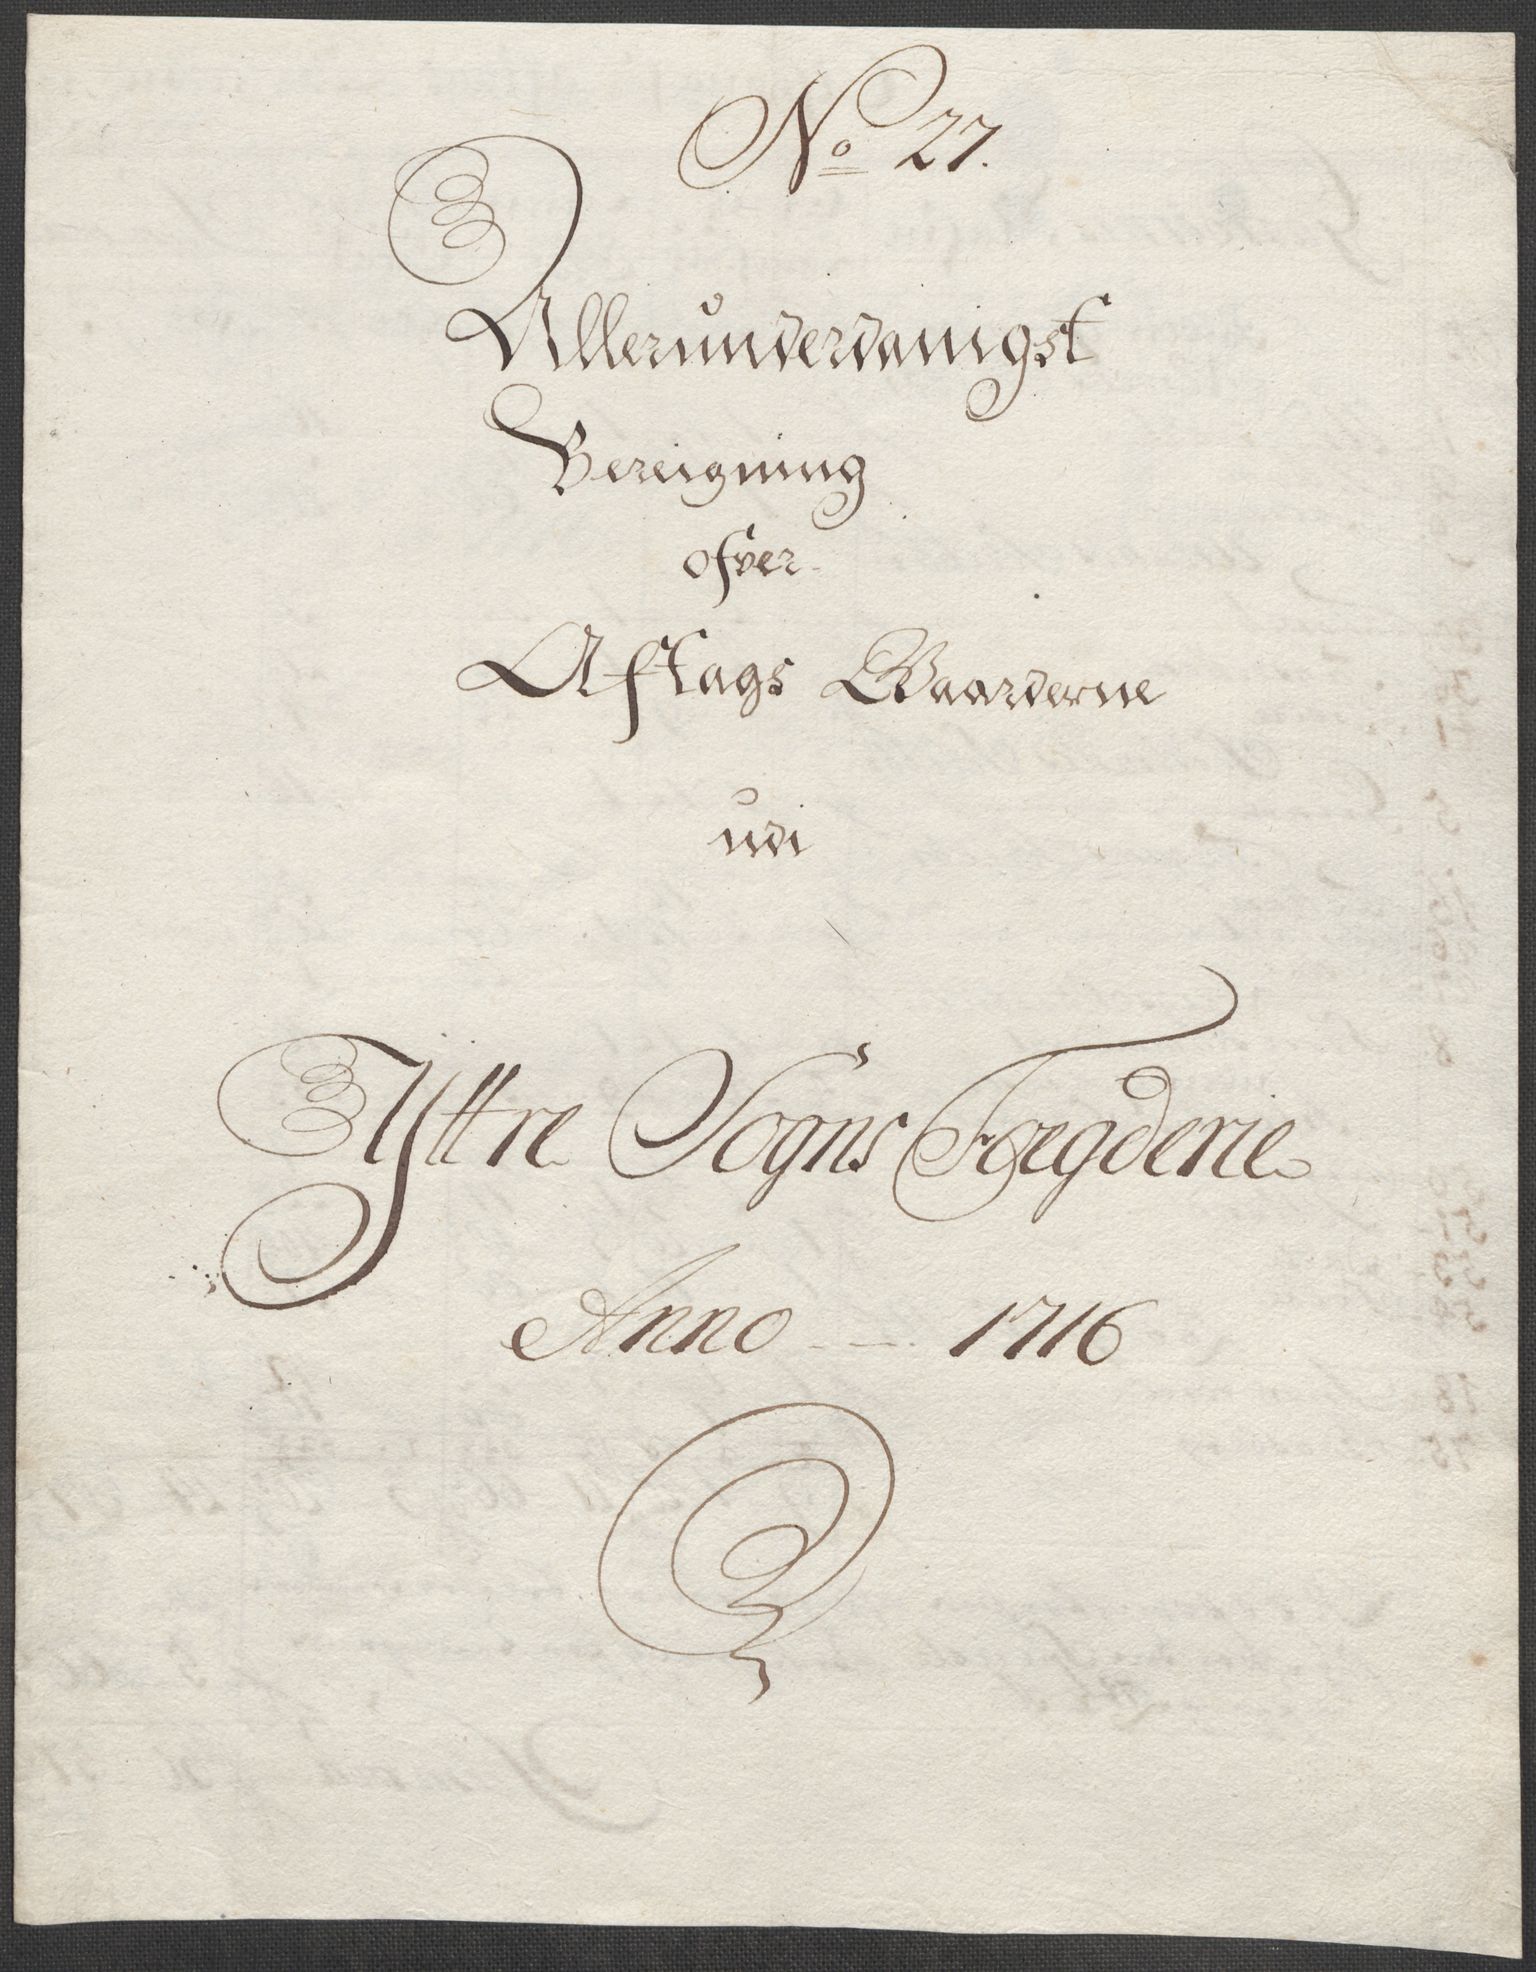 No 27.
Allerunderdanigst
Bereigning
ofver
Aftags Waarderne
udi
Yttre Sogns Fœgderie
Anno -- 1716